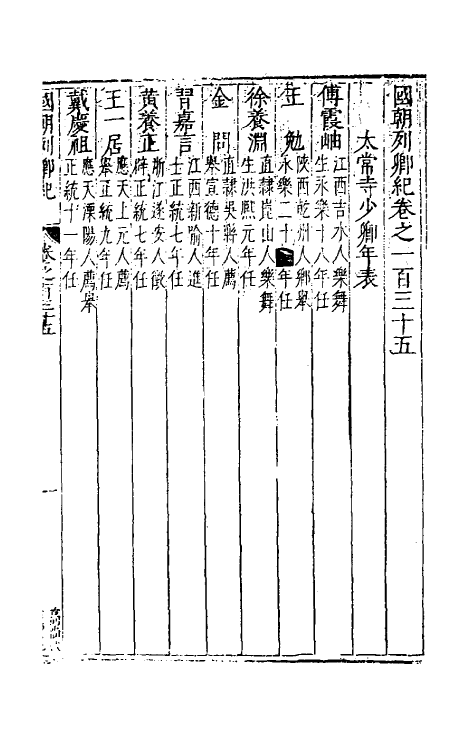 國朝列卿紀卷之一百三十五
太常寺少卿年表
傅霞岫 江西吉水人樂舞
生永樂十八年任
王勉 陝西乾州人鄉舉
永樂二十 年任
徐養淵 直隸崑山人樂舞
生洪熙元年任
金問 直隸吳縣人薦
舉宣德十年任
胥嘉言 江西新喻人進
士正統七年任
黄養正 浙江遂安人徵
辟正統七年任
王一居 應天上元人薦
舉正統九年任
戴慶祖 應天溧陽人薦舉
正統十一年任
國朝列卿紀 卷之一百三十五 一